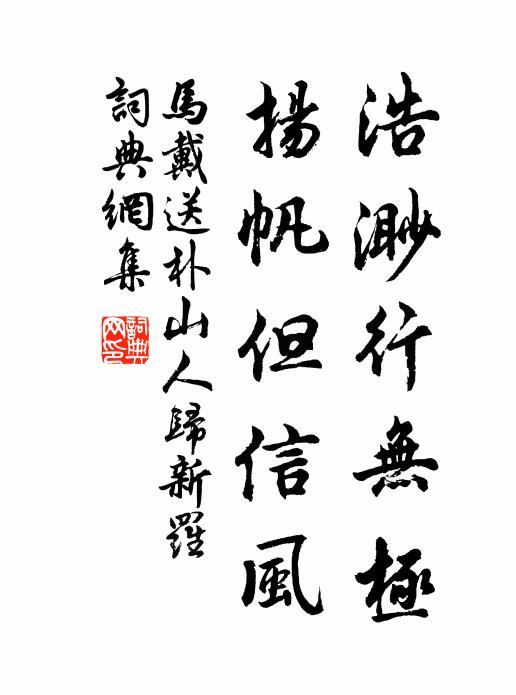 浩渺行無極
揚帆但信風
馬戴送朴山人歸新羅
詞典網集
詞典網印